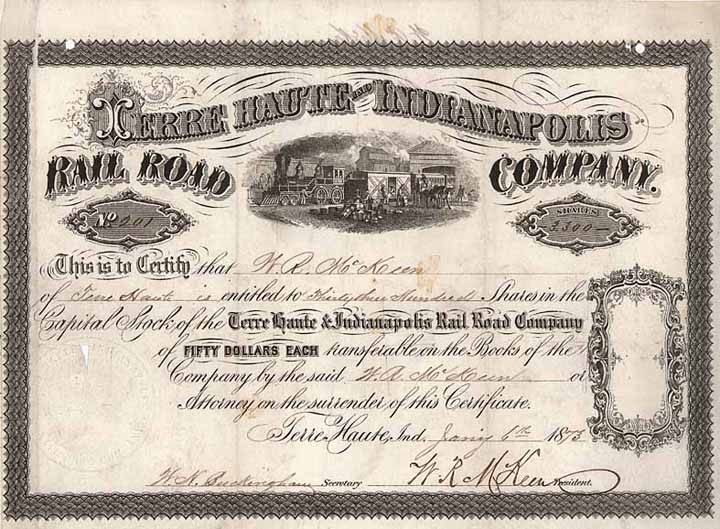 TERRE HAUTE AND INDIANAPOLIS
RAIL ROAD COMPANY.
No 201
SHARES
3,300—
This is to Certify that W. R. McKeen
of Terre Haute is entitled to Hundred Shares in the
Capital Stock of the Terre Haute & Indianapolis Rail Road Company
of FIFTY DOLLARS EACH transferable on the Books of the
Company by the said W. R. McKeen or
Attorney on the surrender of this Certificate.
Terre Haute, Ind. Jany 6th 1873
W. N. Buckingham Secretary W R McKeen President.